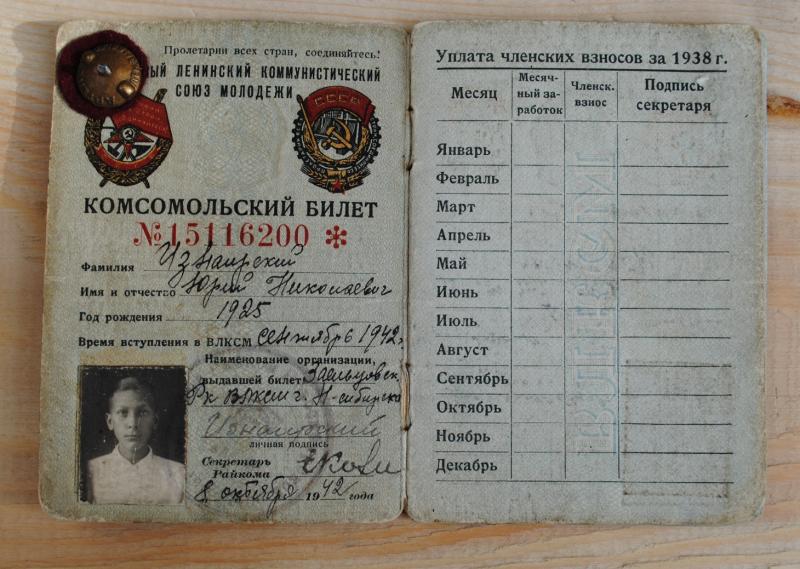 Пролетарии всех стран, соединяйтесь!
ный ЛЕНИНСКИЙ КОММУНИСТИЧЕСКИЙ
СОЮЗ МОЛОДЕЖИ
СССР
КОМСОМОЛЬСКИЙ БИЛЕТ
№15116200 *
Фамилия
Имя и отчество Юрий Николаевич
Год рождения 1925
Время вступления в ВЛКСМ сентябрь 1942 г.
Наименование организации,
выдавшей билет Заельцовск.
Рк ВЛКСМ г. Н-сибирска
личная подпись
Секретарь
Райкома
8 октября 1942 года
Уплата членских взносов за 1938 г.
Месяц
Месяч-
ный за-
работок
Членск.
взнос
Подпись
секретаря
Январь
Февраль
Март
Апрель
Май
Июнь
Июль
Август
Сентябрь
Октябрь
Ноябрь
Декабрь